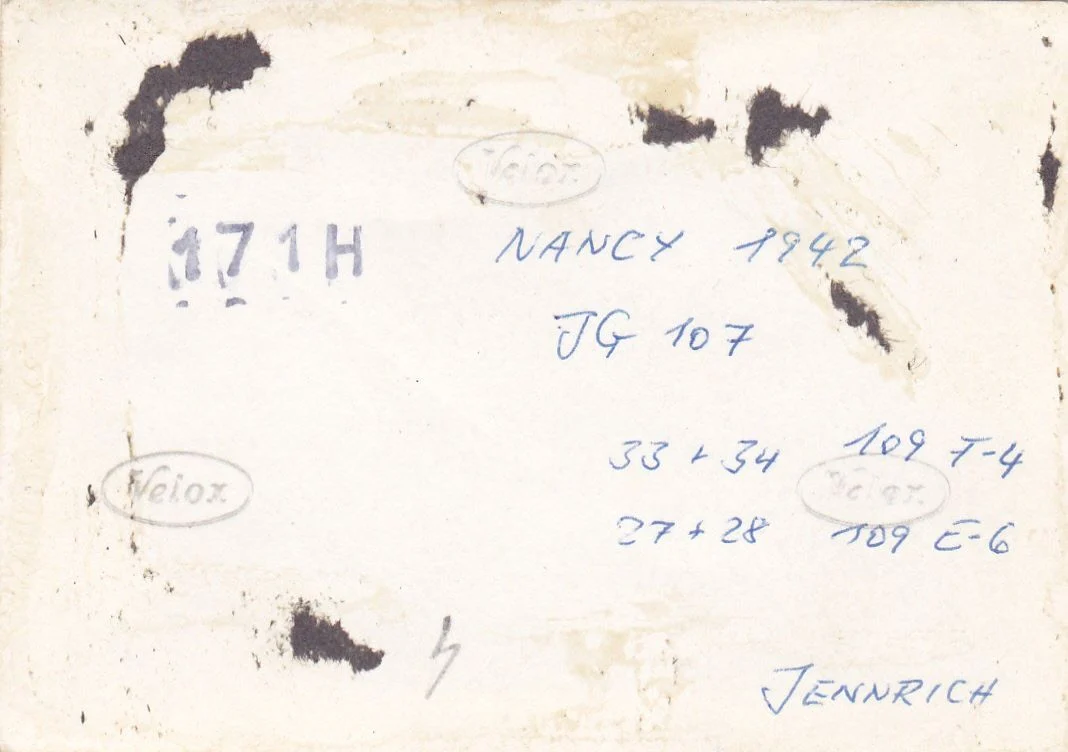 Velox
171H
NANCY 1942
JG 107
33 + 34 109 T-4
Velox
Velox
27 + 28 109 E-6
JENNRICH